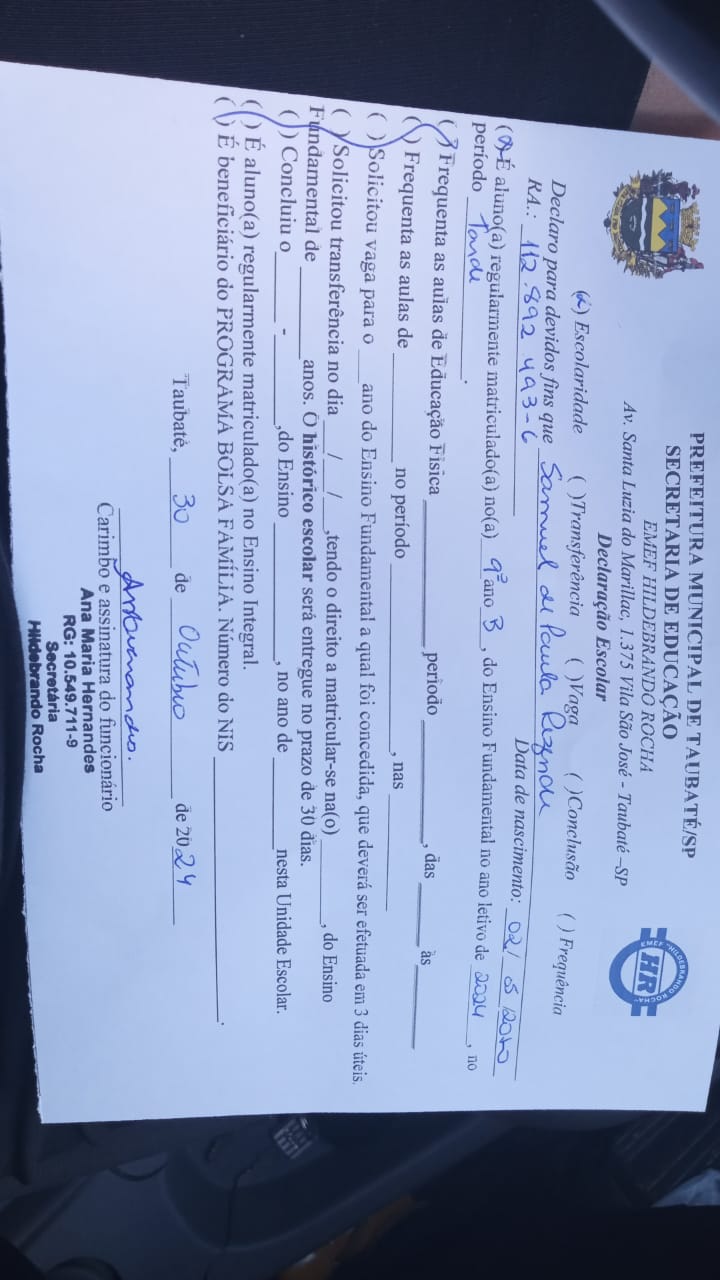 PREFEITURA MUNICIPAL DE TAUBATÉ/SP
SECRETARIA DE EDUCAÇÃO
EMEF HILDEBRANDO ROCHA
Av. Santa Luzia do Marillac, 1.375 Vila São José - Taubaté –SP
Declaração Escolar
EMEF "HILDEBRANDO ROCHA"
HR
(x) Escolaridade ( )Transferência ( )Vaga ( )Conclusão ( ) Frequência
Declaro para devidos fins que Samuel de Paula Rezende
RA.: 112.892.493-6 Data de nascimento: 02/ 5 /2010
(x) É aluno(a) regularmente matriculado(a) no(a) 9º ano B, do Ensino Fundamental no ano letivo de 2024, no
período Tarde.
( ) Frequenta as aulas de Educação Física ____ período ____, das ____ às ____
( ) Frequenta as aulas de ____ no período ____, nas ____
( ) Solicitou vaga para o ___ ano do Ensino Fundamental a qual foi concedida, que deverá ser efetuada em 3 dias úteis.
( ) Solicitou transferência no dia ___/___/___,tendo o direito a matricular-se na(o) ____, do Ensino
Fundamental de ____ anos. O histórico escolar será entregue no prazo de 30 dias.
( ) Concluiu o ____ - ____,do Ensino ____, no ano de ____ nesta Unidade Escolar.
( ) É aluno(a) regularmente matriculado(a) no Ensino Integral.
( ) É beneficiário do PROGRAMA BOLSA FAMÍLIA. Número do NIS ____.
Taubaté, 30 de Outubro de 2024
Carimbo e assinatura do funcionário
Ana Maria Hernandes
RG: 10.549.711-9
Secretária
Hildebrando Rocha